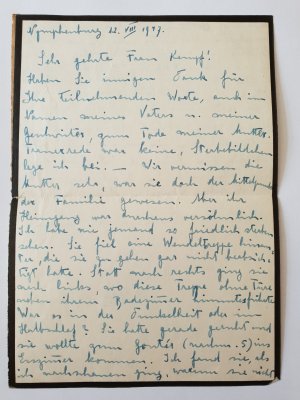 Nymphenburg 22. VIII 1937.
Sehr geehrte Frau Kempf!
Haben Sie innigen Dank für
Ihre teilnehmenden Worte, auch im
Namen meines Vaters u. meiner
Geschwister, zum Tode meiner Mutter.
Trauerrede war keine, Sterbebildchen
lege ich bei. — Wir vermissen die
Mutter sehr, war sie doch der Mittelpunkt
der Familie gewesen. Aber ihr
Heimgang war überaus versöhnlich.
Ich habe nie jemand so friedlich sterben
sehen. Sie fiel eine Wendeltreppe hinun-
ter, die sie zu gehen gar nicht beabsich-
tigt hatte. Statt nach rechts ging sie
nach links, wo diese Treppe ohne Türe
neben ihrem Badezimmer hinunterführte.
War es in der Dunkelheit oder im
Halbschlaf? Sie hatte gerade geruht und
sie wollte zum Goutée (nachm. 5) ins
Esszimmer kommen. Ich fand sie, als
ich nachschauen ging, warum sie nicht